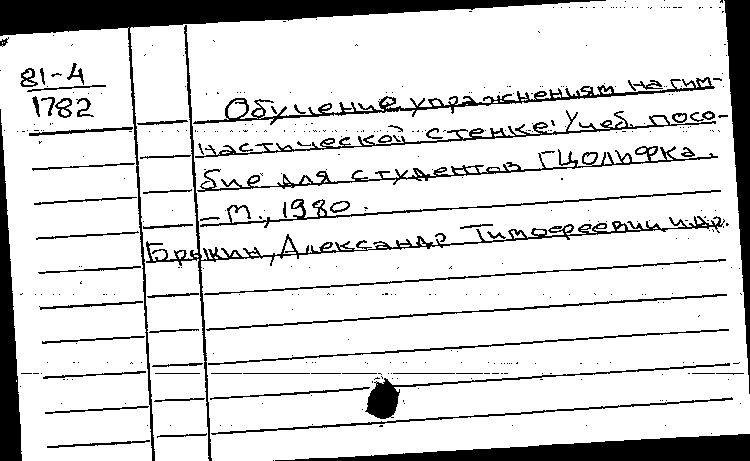 81-4
1782
Обучение упражнениям на гим-
настической стенке: Учеб. посо-
бие для студентов ГЦОЛИФКа.
- М., 1980.
Брыкин, Александр Тимофеевич и др.